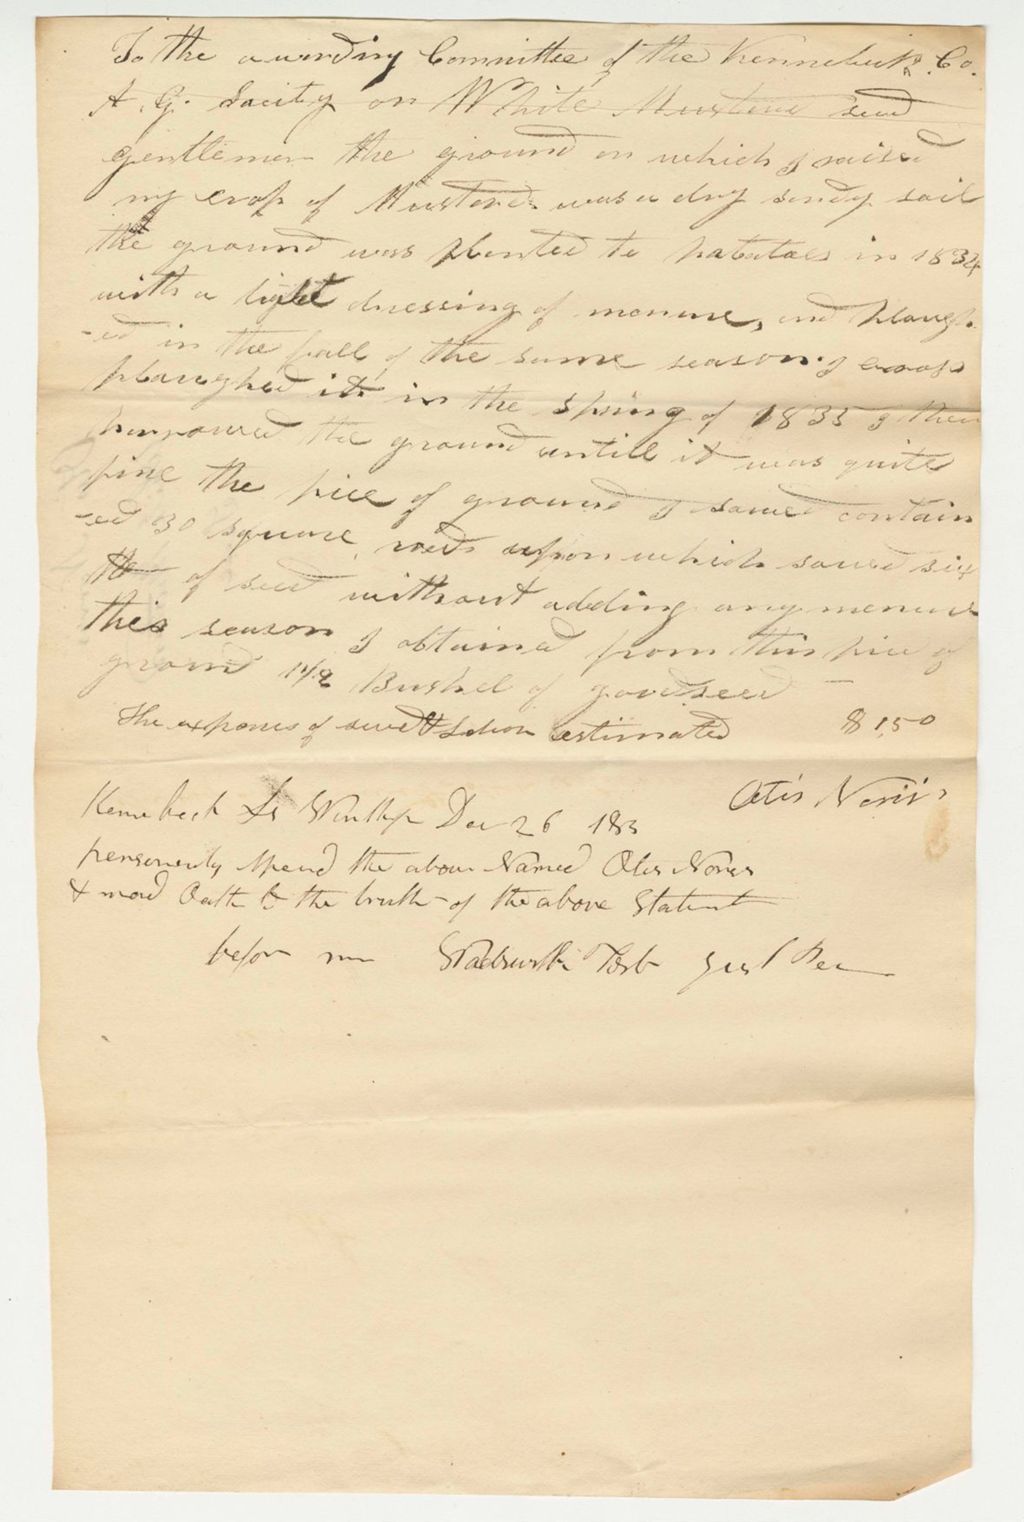 To the awarding Committee of the Kennebeck Co.
A. G. Sacity on White Musterd seed
gentlemen the ground on which I raised
my crop of Musterd was a dry sandy soil
the ground was planted to potatoes in 1834
with a light dressing of manure, and plough
-ed in the fall of the same season. I
ploughed it in the Spring of 1835 I then
harrowed the ground untill it was quite
fine the pice of ground I sowed contain
-ed 30 square rods upon which sowed six
lb of seed without adding any menure
this season I obtained from this pice of
ground Bushel of good seed
The expences of seed & Labor estimated $ 1,50
Otis Noris
Kennebeck Ss Winthp Dec 26 183
personly apeard the above Named Otis Noris
& mad Oath to the truth of the above Statent
before me Wadsworth Just Pea